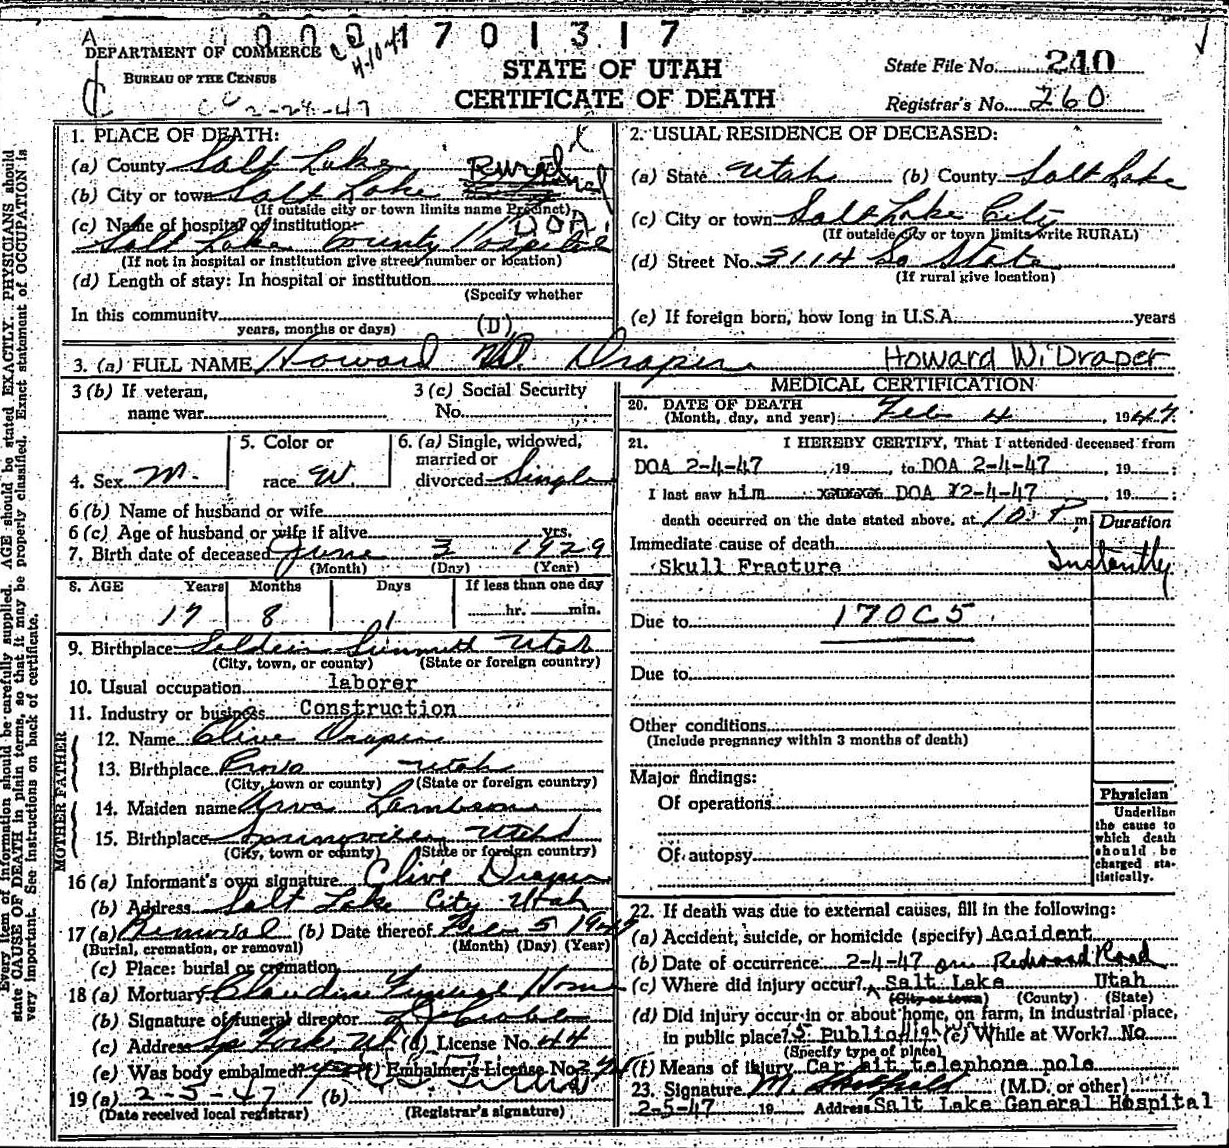 A 0002 1701317
DEPARTMENT OF COMMERCE
BUREAU OF THE CENSUS
2-24-47
STATE OF UTAH
CERTIFICATE OF DEATH
State File No. 240
Registrar's No. 260
1. PLACE OF DEATH:
(a) County Salt Lake Rural
(b) City or town Salt Lake
(If outside city or town limits name Precinct)
(c) Name of hospital or institution: DOA
Salt Lake County Hospital
(If not in hospital or institution give street number or location)
(d) Length of stay: In hospital or institution
(Specify whether
In this community
years, months or days) (D)
2. USUAL RESIDENCE OF DECEASED:
(a) State Utah (b) County Salt Lake
(c) City or town Salt Lake City
(If outside city or town limits write RURAL)
(d) Street No. 3114 So State
(If rural give location)
(e) If foreign born, how long in U.S.A. years
3. (a) FULL NAME Howard W. Draper Howard W. Draper
3 (b) If veteran, name war
3 (c) Social Security No.
4. Sex M.
5. Color or race W.
6. (a) Single, widowed, married or divorced Single
6 (b) Name of husband or wife
6 (c) Age of husband or wife if alive yrs.
7. Birth date of deceased June 3 1929
(Month) (Day) (Year)
8. AGE Years Months Days If less than one day
17 8 1 hr. min.
9. Birthplace Soldier Summit Utah
(City, town, or county) (State or foreign country)
10. Usual occupation laborer
11. Industry or business Construction
FATHER
12. Name Clive Draper
13. Birthplace Provo Utah
(City, town or county) (State or foreign country)
MOTHER
14. Maiden name Arva Lambson
15. Birthplace Springville Utah
(City, town or county) (State or foreign country)
16 (a) Informant's own signature Clive Draper
(b) Address Salt Lake City Utah
17 (a) Removal (b) Date thereof Feb 5 1947
(Burial, cremation, or removal) (Month) (Day) (Year)
(c) Place: burial or cremation
18 (a) Mortuary Claudin Funeral Home
(b) Signature of funeral director
(c) Address Sp Fork Ut (d) License No. 44
(e) Was body embalmed? yes (f) Embalmer's License No.
19 (a) 2-5-47 (b)
(Date received local registrar) (Registrar's signature)
MEDICAL CERTIFICATION
20. DATE OF DEATH
(Month, day, and year) Feb 4 1947
21. I HEREBY CERTIFY, That I attended deceased from
DOA 2-4-47, 19 to DOA 2-4-47, 19 ;
I last saw him DOA 2-4-47, 19 ;
death occurred on the date stated above, at 10 P m
Duration
Immediate cause of death
Skull Fracture Instantly
Due to 170C5
Due to
Other conditions
(Include pregnancy within 3 months of death)
Major findings:
Of operations
Of autopsy
Physician
Underline the cause to which death should be charged statistically.
22. If death was due to external causes, fill in the following:
(a) Accident, suicide, or homicide (specify) Accident
(b) Date of occurrence 2-4-47 on Redwood Road
(c) Where did injury occur? Salt Lake Utah
(City or town) (County) (State)
(d) Did injury occur in or about home, on farm, in industrial place,
in public place? Public (e) While at Work? No
(Specify type of place)
(f) Means of Injury Car hit telephone pole
23. Signature M. (M.D. or other)
2-5-47 19 Address Salt Lake General Hospital
Every item of information should be carefully supplied. AGE should be stated EXACTLY. PHYSICIANS should
state CAUSE OF DEATH in plain terms, so that it may be properly classified. Exact statement of OCCUPATION is
very important. See instructions on back of certificate.